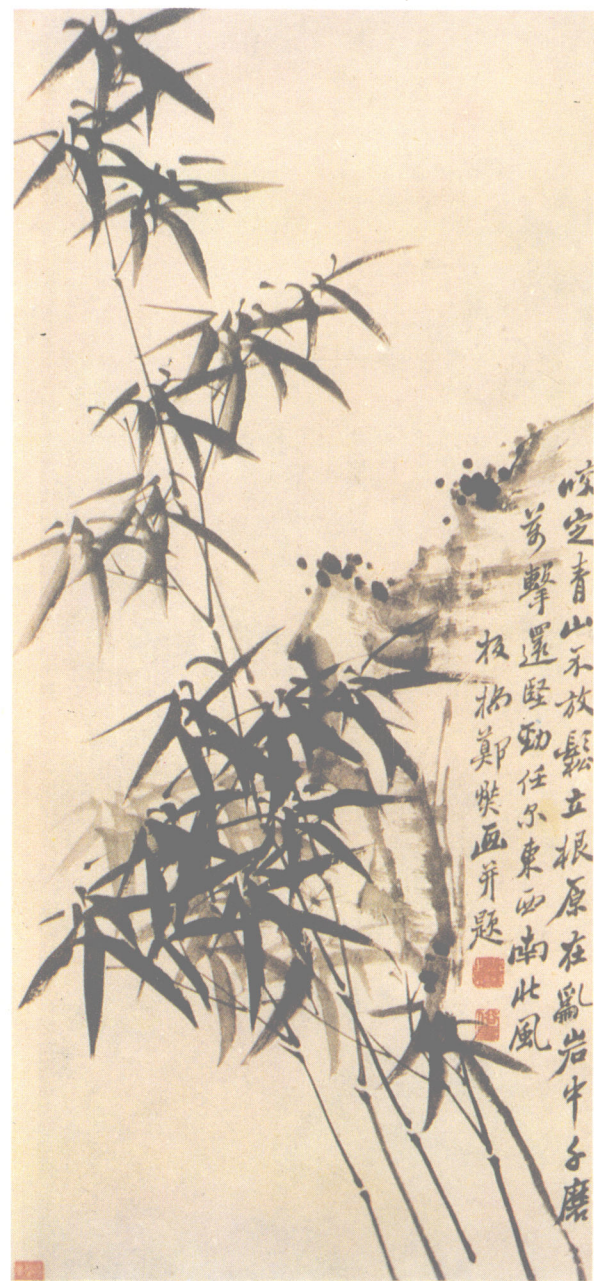 咬定青山不放鬆立根原在亂岩中千磨
萬擊還堅勁任尔東西南北風
板橋鄭燮画并題